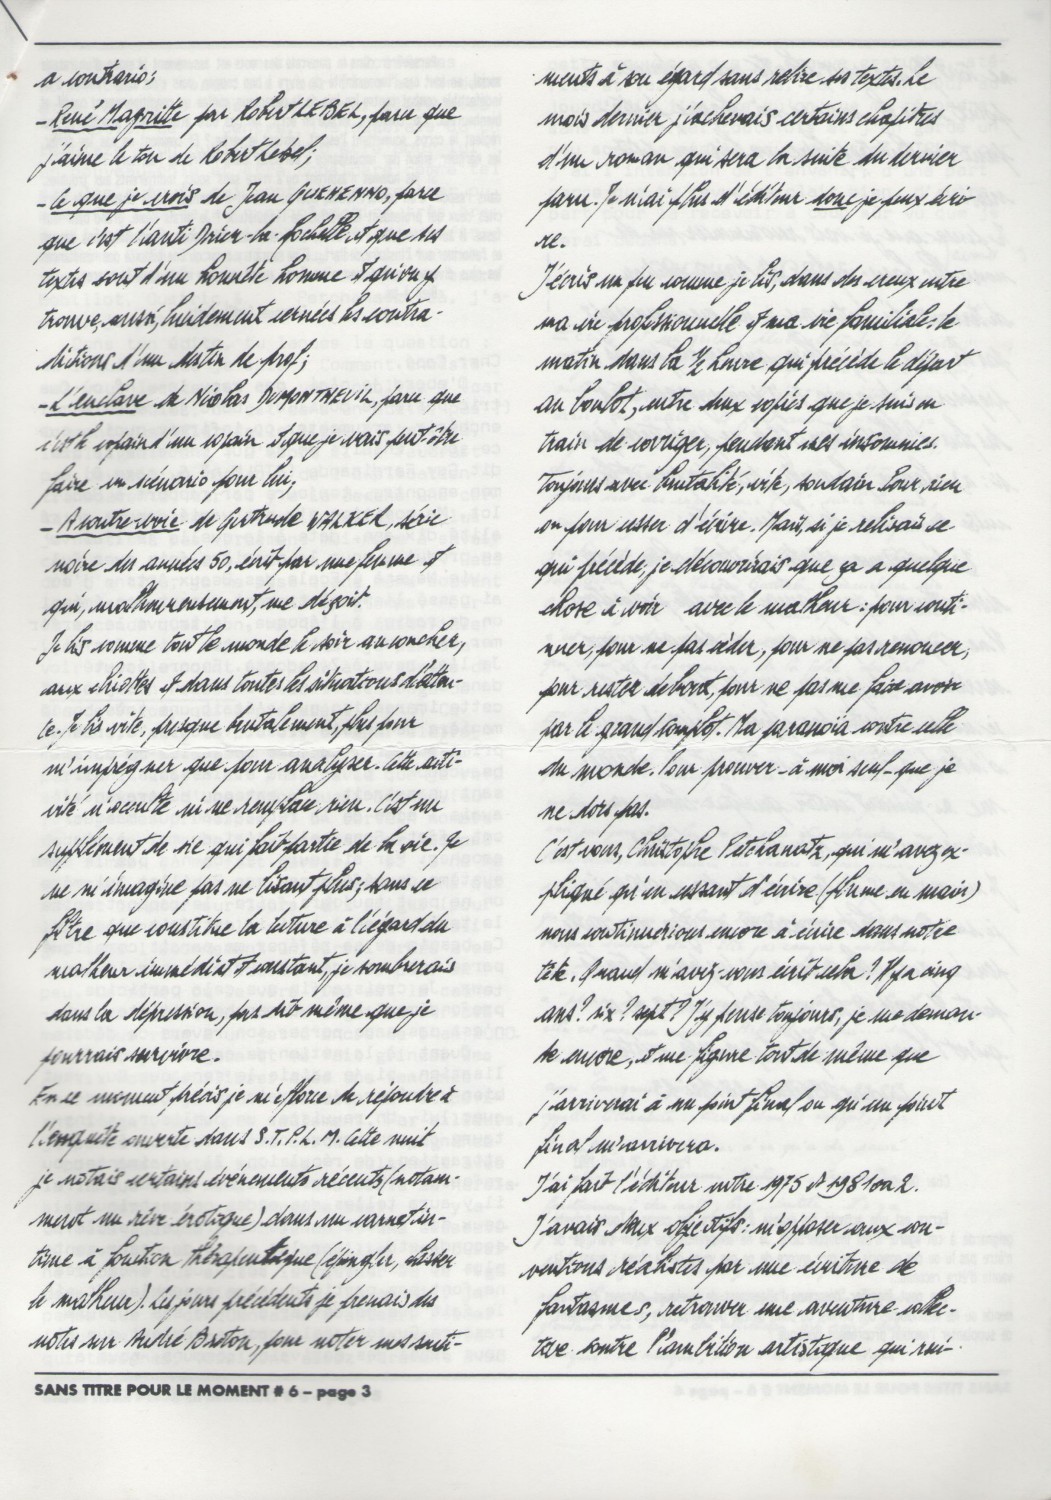 a contrario;
- René Magritte par Robert LEBEL, parce que
j'aime le ton de Robert Lebel;
- Ce que je crois de Jean GUEHENNO, parce
que c'est l'anti Drieu-la-Rochelle et que ses
textes sont d'un honnête homme et qu'on y
trouve, aussi, lucidement cernées les contra-
dictions d'un destin de prof;
- L'enclave de Nicolas DUMONTHEUIL, parce que
c'est le copain d'un copain et que je vais peut-être
faire un scénario pour lui;
- A contre-voie de Gertrude WALKER, série
noire des années 50, écrit par une femme et
qui, malheureusement, me déçoit.
Je lis comme tout le monde le soir au coucher,
aux chiottes et dans toutes les situations d'atten-
te. Je lis vite, presque brutalement, plus pour
m'imprégner que pour analyser. Cette acti-
vité n'occulte ni ne remplace rien. C'est un
supplément de vie qui fait partie de la vie. Je
ne m'imagine pas ne lisant plus; sans ce
filtre que constitue la lecture à l'égard du
malheur immédiat et constant, je sombrerais
dans la dépression, pas dit même que je
pourrais survivre.
En ce moment précis je m'efforce de répondre à
l'enquête ouverte dans S.T.P.L.M. Cette nuit
je notais certains événements récents (notam-
ment un rêve érotique) dans un carnet in-
time à fonction thérapeutique (épingler, chasser
le malheur). Les jours précédents je prenais des
notes sur André Breton, pour noter mes senti-
ments à son égard sans relire ses textes. Le
mois dernier j'achevais certains chapitres
d'un roman qui sera la suite du dernier
paru. Je n'ai plus d'éditeur donc je peux écri-
re.
J'écris un peu comme je lis, dans des creux entre
ma vie professionnelle et ma vie familiale: le
matin dans la 1/2 heure qui précède le départ
au boulot, entre deux copies que je suis en
train de corriger, pendant mes insomnies.
Toujours avec brutalité, vite, soudain pour rien
ou pour cesser d'écrire. Mais, si je relisais ce
qui précède, je découvrirais que ça a quelque
chose à voir avec le malheur: pour conti-
nuer, pour ne pas céder, pour ne pas renoncer,
pour rester debout, pour ne pas me faire avoir
par le grand complot. Ma paranoïa contre celle
du monde. Pour prouver - à moi seul - que je
ne dors pas.
C'est vous, Christophe Petchanatz, qui m'avez ex-
pliqué qu'en cessant d'écrire (plume en main)
nous continuerions encore à écrire dans notre
tête. Quand m'avez-vous écrit cela? Il y a cinq
ans? six? sept? J'y pense toujours, je me deman-
de encore, et me figure tout de même que
j'arriverai à un point final ou qu'un point
final m'arrivera.
J'ai fait l'éditeur entre 1975 et 1981 ou 2.
J'avais deux objectifs: m'opposer aux con-
ventions réalistes par une écriture de
fantasmes, retrouver une aventure collec-
tive contre l'ambition artistique qui rui-
SANS TITRE POUR LE MOMENT # 6 – page 3